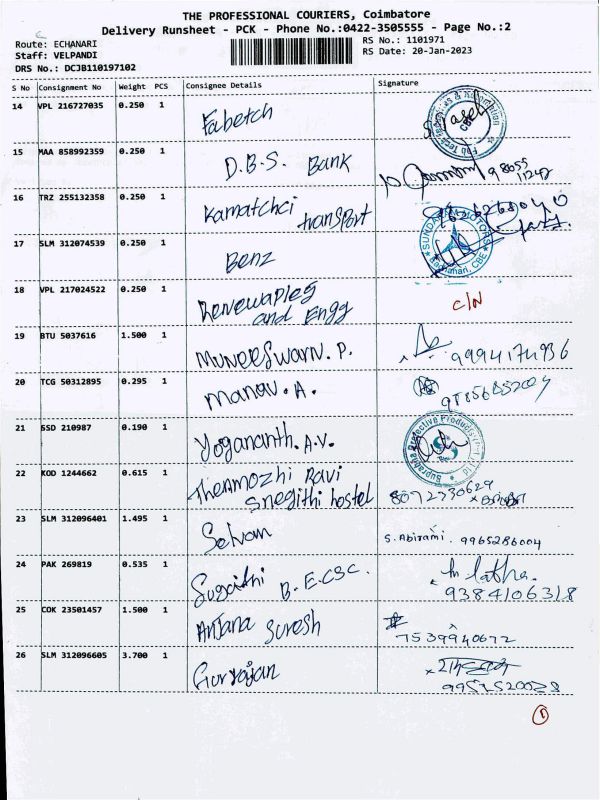 THE PROFESSIONAL COURIERS, Coimbatore
Delivery Runsheet - PCK - Phone No.:0422-3505555 - Page No.:2
Route: ECHANARI
Staff: VELPANDI
DRS No.: DCJB110197102
RS No.: 1101971
RS Date: 20-Jan-2023
S No Consignment No Weight PCS Consignee Details Signature
14 VPL 216727035 0.250 1 Fabetch
15 MAA 858992359 0.250 1 D.B.S. Bank
16 TRZ 255132358 0.250 1 Kamatchci transport
17 SLM 312074539 0.250 1 Benz
SUNDARAM MOTORS
CBE
18 VPL 217024522 0.250 1 Renewaples C/N
and Engg
19 BTU 5037616 1.500 1 Muneeswarn. P. 9994174936
20 TCG 50312895 0.295 1 Manav. A. 98856852004
21 SSD 210987 0.190 1 Yogananth. A.V.
Suprabha Protective Products (P) Ltd
22 KOD 1244662 0.615 1 Thenmozhi Ravi
Snegithi hostel 8072730629
23 SLM 312096401 1.495 1 Selvam S. Abirami. 9965286004
24 PAK 269819 0.535 1 B.E.CSC. Latha.
9384106318
25 COK 23501457 1.500 1 Anjana Suresh
7539940672
26 SLM 312096605 3.700 1 Gurrajan
9952520028